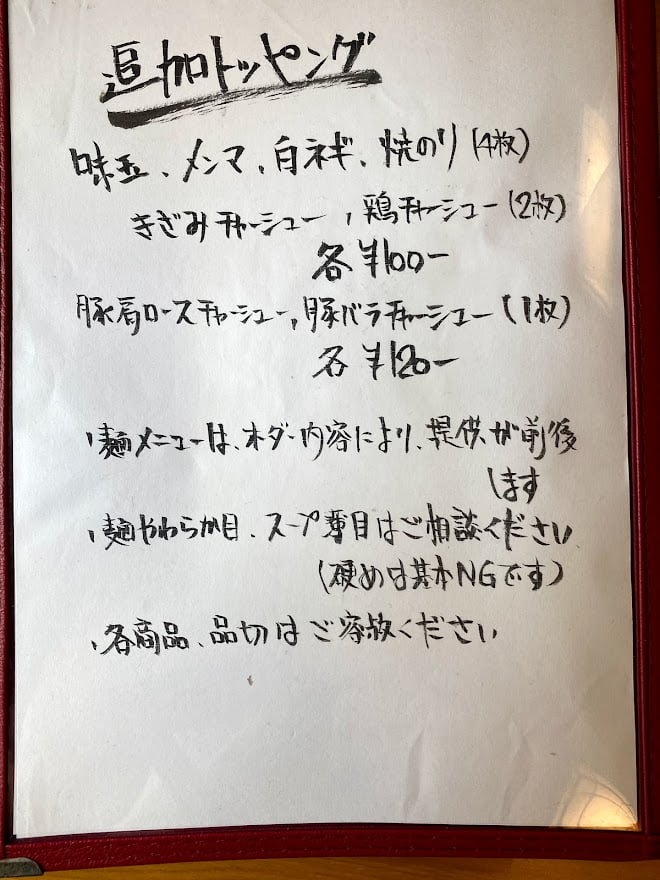 追加トッピング
味玉、メンマ、白ネギ、焼のり(4枚)
きざみチャーシュー、鶏チャーシュー(2枚)
各¥100-
豚肩ロースチャーシュー、豚バラチャーシュー(1枚)
各¥120-
、麺メニューは、オーダー内容により、提供が前後
します
、麺やわらか目、スープ薄目はご相談ください
(硬めは基本NGです)
、各商品、品切はご容赦ください